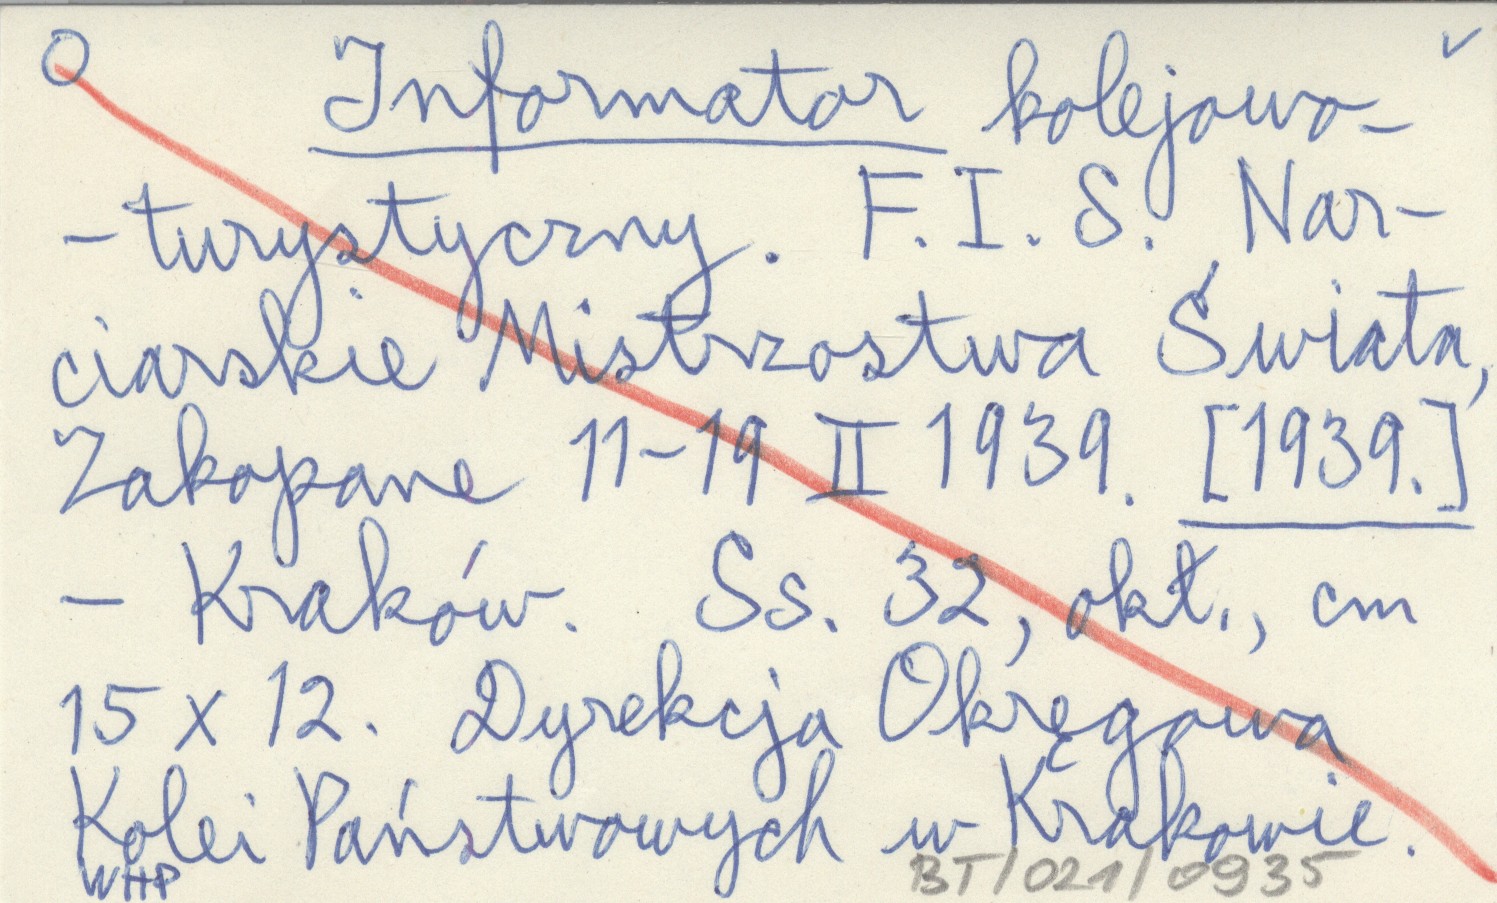 O Informator kolejowo-
-turystyczny. F.I.S. Nar-
ciarskie Mistrzostwa Świata,
Zakopane 11-19 II 1939. [1939.]
- Kraków. Ss. 32, okł., cm
15 x 12. Dyrekcja Okręgowa
Kolei Państwowych w Krakowie.
WHP BT/021/0935